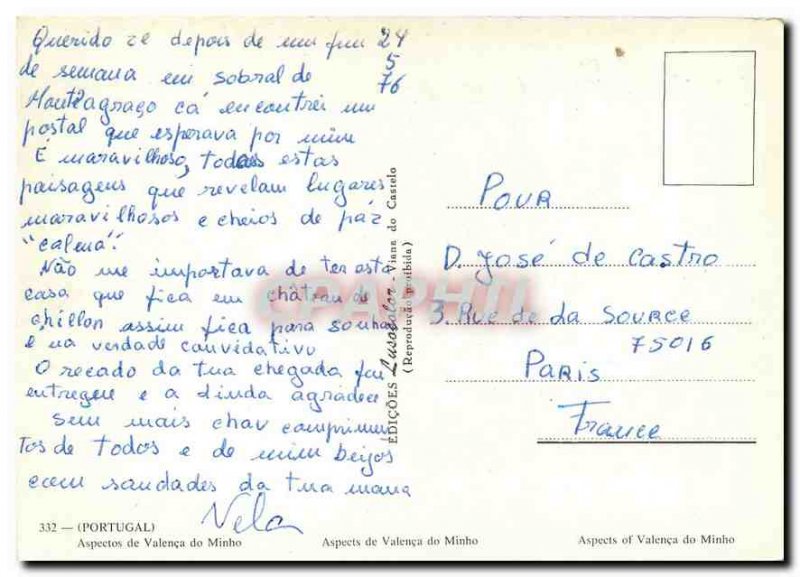 Querido ze depois de um fim
de semana em sobral de
Montagraço cá encontrei um
postal que esperava por mim
É maravilhoso, todas estas
paisagens que revelam lugares
maravilhosos e cheios de paz
"calma".
Não me importava de ter esta
casa que fica em château de
chillon assim fica para sonho
e na verdade convidativo
O recado da tua chegada foi
entregue e a dinda agradece
Sem mais chav comprimen
tos de todos e de mim beijos
com saudades da tua mana
Nela
24
5
76
POUR
D. José de Castro
3. Rue de da SOURCE
75016
PARIS
France
EDIÇÕES Lusocolor - Viana do Castelo
(Reprodução proibida)
CPAPHIL
332 — (PORTUGAL)
Aspectos de Valença do Minho
Aspects de Valença do Minho
Aspects of Valença do Minho